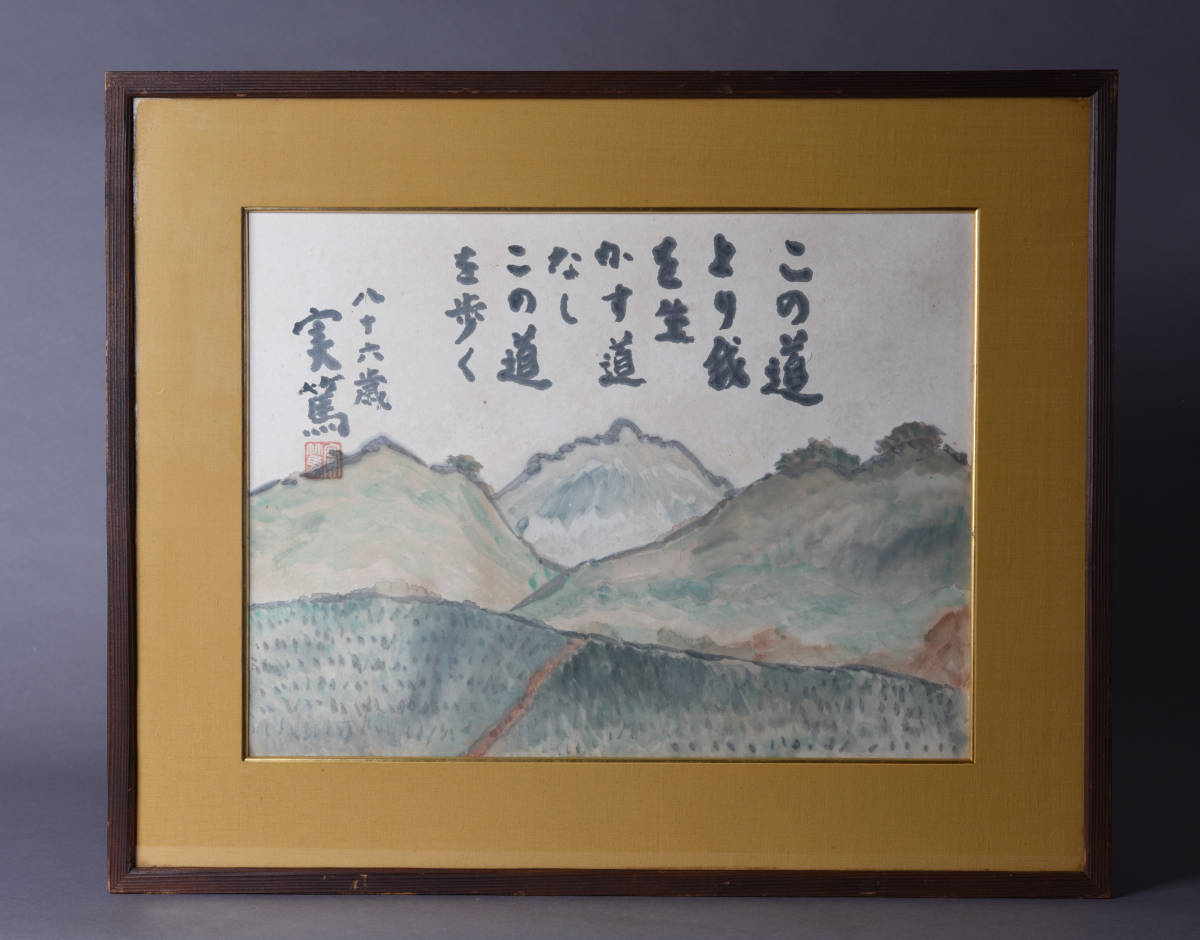 この道
より我
を生
かす道
なし
この道
を歩く
八十六歳
実篤